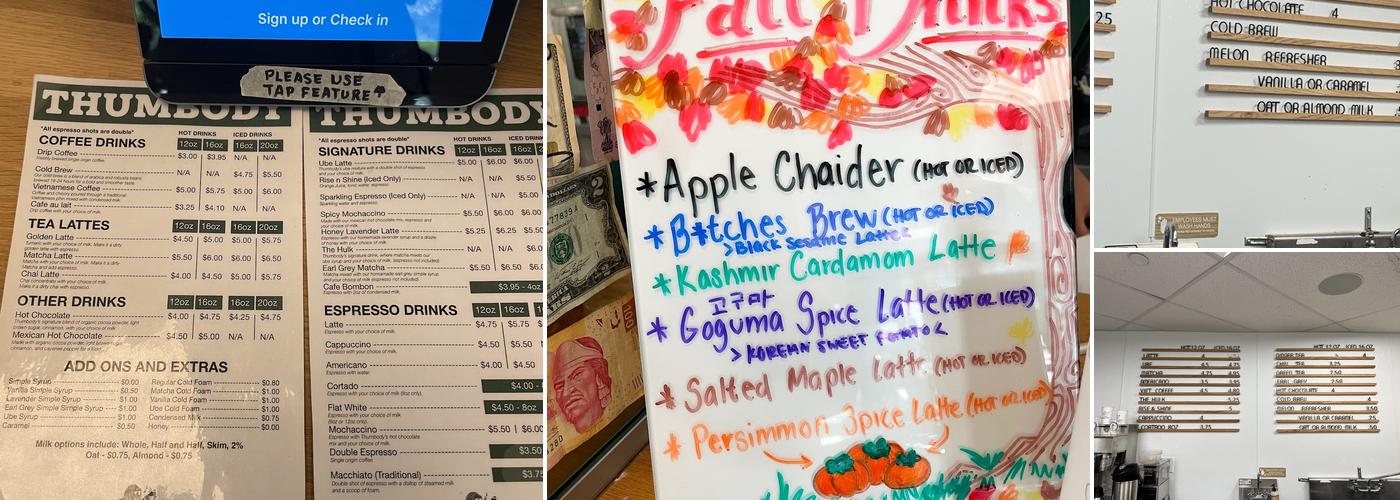 Sign up or Check in
PLEASE USE
TAP FEATURE
THUMBODY
*All espresso shots are double*
HOT DRINKS ICED DRINKS
COFFEE DRINKS 12oz 16oz 16oz 20oz
Drip Coffee $3.00 $3.95 N/A N/A
Freshly brewed single origin coffee.
Cold Brew N/A N/A $4.75 $5.50
Vietnamese Coffee $5.00 $5.75 $5.00 $6.00
Cafe au lait $3.25 $4.10 N/A N/A
Drip coffee with your choice of milk.
TEA LATTES 12oz 16oz 16oz 20oz
Golden Latte $4.50 $5.00 $5.00 $5.75
Matcha Latte $5.50 $6.00 $6.00 $6.50
Chai Latte $4.00 $4.50 $5.00 $5.75
OTHER DRINKS 12oz 16oz 16oz 20oz
Hot Chocolate $4.00 $4.75 $4.25 $4.75
Mexican Hot Chocolate $4.50 $5.00 N/A N/A
ADD ONS AND EXTRAS
Simple Syrup $0.00
Vanilla Simple Syrup $0.50
Lavender Simple Syrup $1.00
Earl Grey Simple Syrup $1.00
Ube Syrup $1.00
Caramel $0.50
Regular Cold Foam $0.80
Matcha Cold Foam $1.00
Vanilla Cold Foam $1.00
Ube Cold Foam $1.00
Condensed Milk $0.70
Honey $0.00
Milk options include: Whole, Half and Half, Skim, 2%
Oat - $0.75, Almond - $0.75
THUMBODY
*All espresso shots are double*
HOT DRINKS ICED DRIN
SIGNATURE DRINKS 12oz 16oz 16oz
Ube Latte $5.00 $6.00 $6.00
Rise n Shine (Iced Only) N/A N/A $5.00
Orange Juice, tonic water, espresso
Sparkling Espresso (Iced Only) N/A N/A $5.00
Sparkling water, espresso.
Spicy Mochaccino $5.50 $6.00 $6.00
Honey Lavender Latte $5.25 $6.25 $5.50
The Hulk N/A N/A $6.00
Earl Grey Matcha $5.50 $6.50 $6.00
Cafe Bombon $3.95 - 4oz
Espresso with 2oz of condensed milk.
ESPRESSO DRINKS 12oz 16oz
Latte $4.75 $5.75
Espresso with your choice of milk.
Cappuccino $4.75 $5.50
Espresso with your choice of milk.
Americano $4.00 $4.50
Espresso with water.
Cortado $4.00 -
Flat White $4.50 - 8oz
Mochaccino $5.50 $6.00
Double Espresso $3.50
Single origin coffee
Macchiato (Traditional) $3.75
Fall Drinks
*Apple Chaider (HOT OR ICED)
*B*tches Brew (HOT OR ICED)
>Black Sesame Latte<
*Kashmir Cardamom Latte
고구마
*Goguma Spice Latte (HOT OR ICED)
> KOREAN SWEET POTATO <
*Salted Maple Latte (HOT OR ICED)
*Persimmon Spice Latte (HOT OR ICED)
25
HOT CHOCOLATE 4
COLD BREW
MELON REFRESHER
VANILLA OR CARAMEL
OAT OR ALMOND MILK
EMPLOYEES MUST
WASH HANDS
HOT 12 OZ ICED 16 OZ
LATTE
UBE
MATCHA
AMERICANO
VIET. COFFEE
THE HULK
RISE & SHINE
CAPPUCCINO 4
CORTADO 8OZ
HOT 12 OZ ICED 16 OZ
GINGER TEA
CHAI TEA
GREEN TEA
EARL GREY 2.50
HOT CHOCOLATE 4
COLD BREW
MELON REFRESHER 3.50
VANILLA OR CARAMEL
OAT OR ALMOND MILK .50